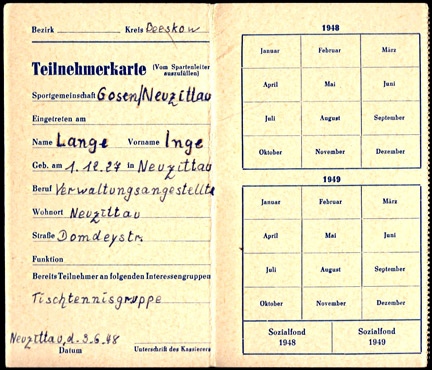 Bezirk Kreis Beeskow
Teilnehmerkarte (Vom Spartenleiter
auszufüllen)
Sportgemeinschaft Gosen/Neuzittau
Eingetreten am
Name Lange Vorname Inge
Geb. am 1.12.27 in Neuzittau
Beruf Verwaltungsangestellte
Wohnort Neuzittau
Straße Domdeystr.
Funktion
Bereits Teilnehmer an folgenden Interessengruppen
Tischtennisgruppe
Neuzittau, d. 3.6.48
Datum Unterschrift des Kassierers
1948
Januar Februar März
April Mai Juni
Juli August September
Oktober November Dezember
1949
Januar Februar März
April Mai Juni
Juli August September
Oktober November Dezember
Sozialfond Sozialfond
1948 1949